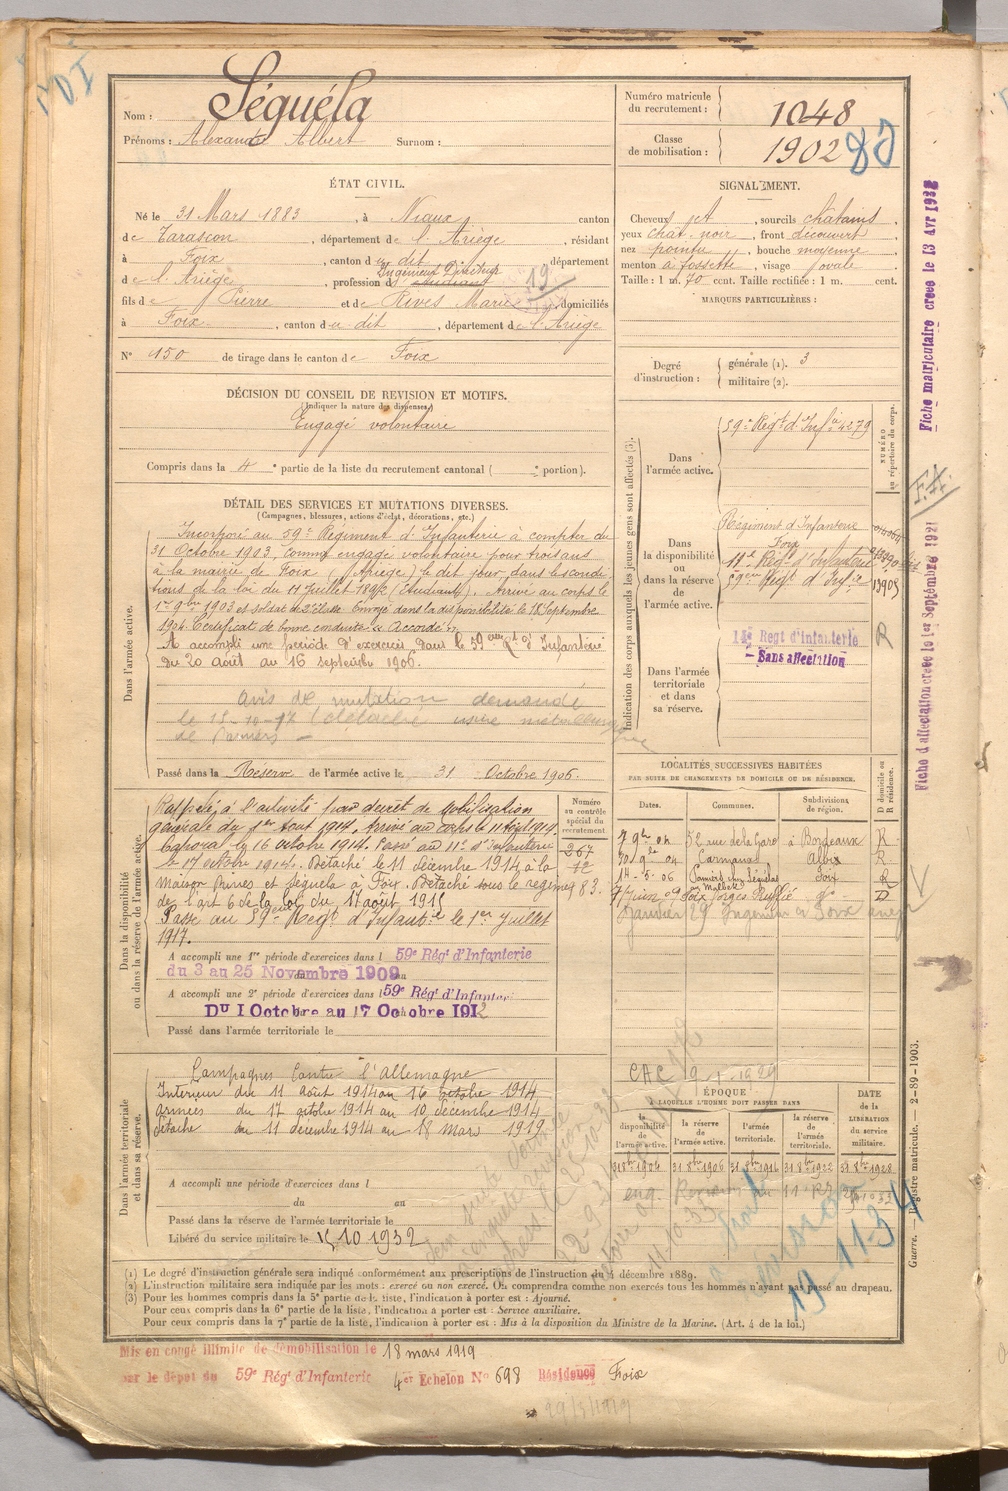 Nom : Séguéla
Prénoms : Alexandre Albert Surnom :
Numéro matricule du recrutement : 1048
Classe de mobilisation : 1902
ÉTAT CIVIL.
Né le 31 Mars 1883, à Niaux, canton
de Tarascon, département de l'Ariège, résidant
à Foix, canton du dit, département
de l'Ariège, profession d' Ingénieur Directeur étudiant
19
fils de Pierre et de Rives Marie domiciliés
à Foix, canton du dit, département de l'Ariège
N° 150 de tirage dans le canton de Foix
SIGNALEMENT.
Cheveux jet, sourcils châtains,
yeux chat. noir, front découvert,
nez pointu, bouche moyenne,
menton à fossette, visage ovale.
Taille : 1 m. 70 cent. Taille rectifiée : 1 m. cent.
MARQUES PARTICULIÈRES :
Degré d'instruction : générale (1). 3
militaire (2).
DÉCISION DU CONSEIL DE REVISION ET MOTIFS.
(Indiquer la nature des dispenses.)
Engagé volontaire
Compris dans la 4e partie de la liste du recrutement cantonal ( e portion).
DÉTAIL DES SERVICES ET MUTATIONS DIVERSES.
(Campagnes, blessures, actions d'éclat, décorations, etc.)
Dans l'armée active.
Incorporé au 59e Régiment d'Infanterie à compter du
31 Octobre 1903, comme engagé volontaire pour trois ans
à la mairie de Foix, (Ariège) le dit jour, dans les condi
tions de la loi du 11 juillet 1892 (Etudiant). Arrivé au corps le
1er 9bre 1903 et soldat de 2e classe. Envoyé dans la disponibilité le 18 Septembre
1904. Certificat de bonne conduite "Accordé".
A accompli une période d'exercices dans le 59eme Rt d'Infanterie
du 20 août au 16 septembre 1906.
Avis de mutation demandé
le 15-10-17 (détaché usine métallurgique
de Pamiers -
Passé dans la Réserve de l'armée active le 31 Octobre 1906.
Indication des corps auxquels les jeunes gens sont affectés (3).
NUMÉRO au répertoire du corps.
Dans l'armée active.
59e Régt d'Infie 4279
Dans la disponibilité ou dans la réserve de l'armée active.
Régiment d'Infanterie
Foix
11e Régt d'Infanterie
59eme Régt d'Infie 13905
Dans l'armée territoriale et dans sa réserve.
14e Regt d'infanterie
- Sans affectation
R
Fiche matriculaire creee le 13 Avr 1932
F.A.
Fiche d'affectation creee le 1er Septembre 1921
Dans la disponibilité ou dans la réserve de l'armée active.
Rappelé à l'activité par décret de mobilisation
générale du 1er Aout 1914. Arrivé au corps le 11 Août 1914.
Caporal le 16 octobre 1914. Passé au 11e d'Infanterie
le 17 octobre 1914. Détaché le 11 décembre 1914 à la
Maison Prunes et Séguéla à Foix. Détaché sous le régime
de l'art 6 de la loi du 17 août 1915
Passé au 59eme Régt d'Infantie le 1er Juillet
1917.
Numéro au contrôle spécial du recrutement
267
12
983.
A accompli une 1re période d'exercices dans l 59e Régt d'Infanterie
du 3 au 25 Novembre 1909
A accompli une 2e période d'exercices dans l 59e Régt d'Infanterie
Du 1 Octobre au 17 Octobre 1912
Passé dans l'armée territoriale le
LOCALITÉS SUCCESSIVES HABITÉES
PAR SUITE DE CHANGEMENTS DE DOMICILE OU DE RÉSIDENCE.
Dates. Communes. Subdivisions de région. D domicile ou R résidence.
7 9bre 04 52, rue de la Gare à Bordeaux R
30 9bre 04 Carmaux Albi R
14-5-06 Pamiers Foix R
7 juin 09 Foix Forges Rufflié do D
Janvier 29 Ingénieur à Foix
CAC 9-1-1929
Dans l'armée territoriale et dans sa réserve.
Campagnes Contre l'Allemagne
Intérieur du 11 août 1914 au 16 octobre 1914
Armées du 17 octobre 1914 au 10 décembre 1914
Détaché du 11 décembre 1914 au 18 mars 1919
A accompli une période d'exercices dans l
du au
Passé dans la réserve de l'armée territoriale le
Libéré du service militaire le 15 10 1932
ÉPOQUE
À LAQUELLE L'HOMME DOIT PASSER DANS
la disponibilité de l'armée active. la réserve de l'armée active. l'armée territoriale. la réserve de l'armée territoriale. DATE de la LIBÉRATION du service militaire.
31 8bre 1904 31 8bre 1906 31 8bre 1916 31 8bre 1922 31 8bre 1928
19 11-34
Registre matricule. — 2-89-1903.
Guerre.
(1) Le degré d'instruction générale sera indiqué conformément aux prescriptions de l'instruction du 4 décembre 1889.
(2) L'instruction militaire sera indiquée par les mots : exercé ou non exercé. On comprendra comme non exercés tous les hommes n'ayant pas passé au drapeau.
(3) Pour les hommes compris dans la 5e partie de la liste, l'indication à porter est : Ajourné.
Pour ceux compris dans la 6e partie de la liste, l'indication à porter est : Service auxiliaire.
Pour ceux compris dans la 7e partie de la liste, l'indication à porter est : Mis à la disposition du Ministre de la Marine. (Art. 4 de la loi.)
Mis en congé illimité de démobilisation le 18 mars 1919
par le dépôt du 59e Régt d'Infanterie 4er Echelon N° 698 Résidence Foix